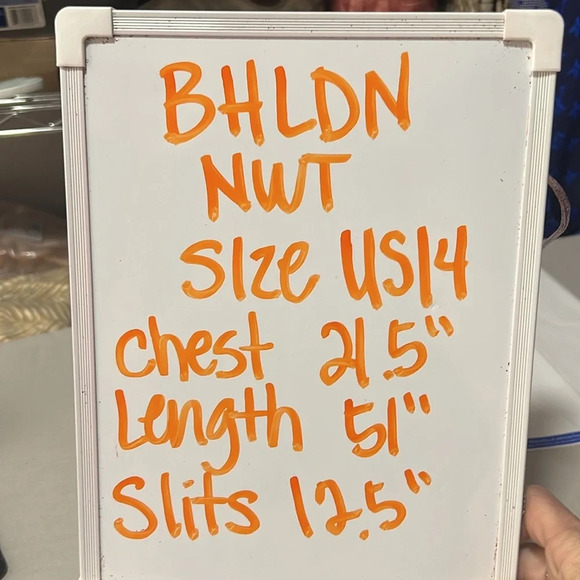 BHLDN
NWT
Size US14
Chest 21.5"
Length 51"
Slits 12.5"